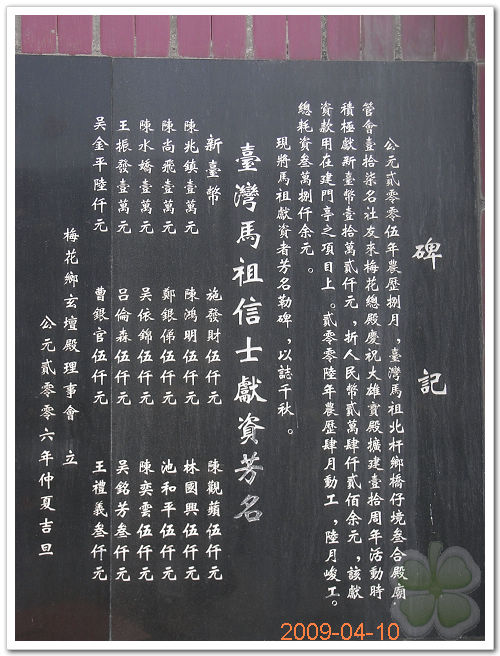 碑記
公元貳零零伍年農歷捌月，臺灣馬祖北杆鄉橋仔境叁合殿廟·
管會壹拾柒名社友來梅花總殿慶祝大雄寶殿擴建壹拾周年活動時
積極獻新臺幣壹拾萬貳仟元，折人民幣貳萬肆仟貳佰余元，該獻
資款用在建門亭之項目上。貳零零陸年農歷肆月動工，陸月峻工。
總耗資叁萬捌仟余元。
現將馬祖獻資者芳名勒碑，以誌千秋。
臺灣馬祖信士獻資芳名
新臺幣 施發財伍仟元 陳觀蘋伍仟元
陳兆鎮壹萬元 陳鴻明伍仟元 林國興伍仟元
陳尚飛壹萬元 鄭銀俤伍仟元 池和平伍仟元
陳水嬌壹萬元 吳依錦伍仟元 陳奕雲伍仟元
王振發壹萬元 呂倫森伍仟元 吳銘芳叁仟元
吳金平陸仟元 曹銀官伍仟元 王禮義叁仟元
梅花鄉玄壇殿理事會 立
公元貳零零六年仲夏吉旦
2009-04-10